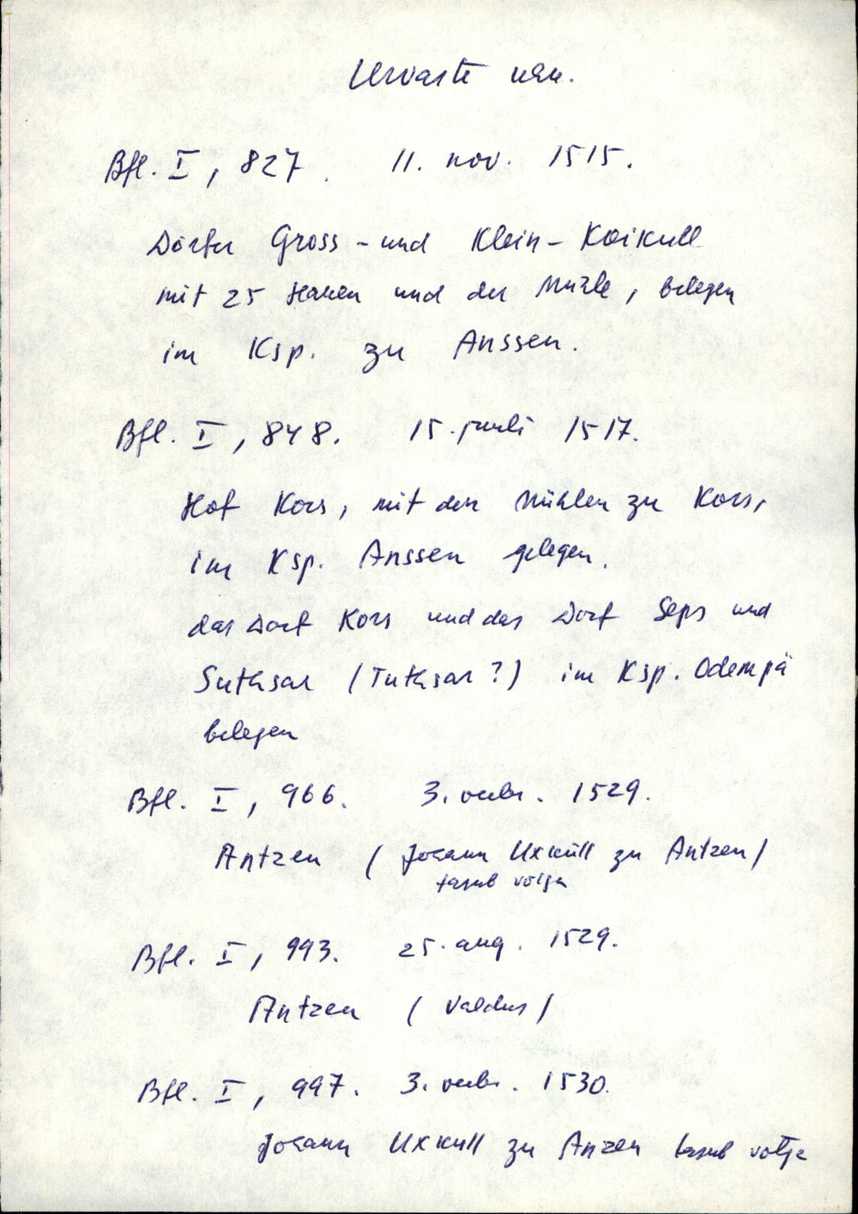 Urvaste khn.
Bfl. I, 827. 11. nov. 1515.
Dörfer Gross- und Klein-Koikull
mit 25 Haken und der Mühle, belegen
im Ksp. zu Anssen.
Bfl. I, 848. 15. juuli 1517.
Hof Kors, mit den Mühlen zu Kors,
im Ksp. Anssen gelegen.
das Dorf Kors und das Dorf Seps und
Suthsar (Tuthsar?) im Ksp. Odempä
belegen
Bfl. I, 966. 3. veebr. 1529.
Antzen (Johann Uxküll zu Antzen/
tasub võlga
Bfl. I, 993. 25. aug. 1529.
Antzen (valdus/
Bfl. I, 997. 3. veebr. 1530.
Johann Uxkull zu Anzen tasub võlga